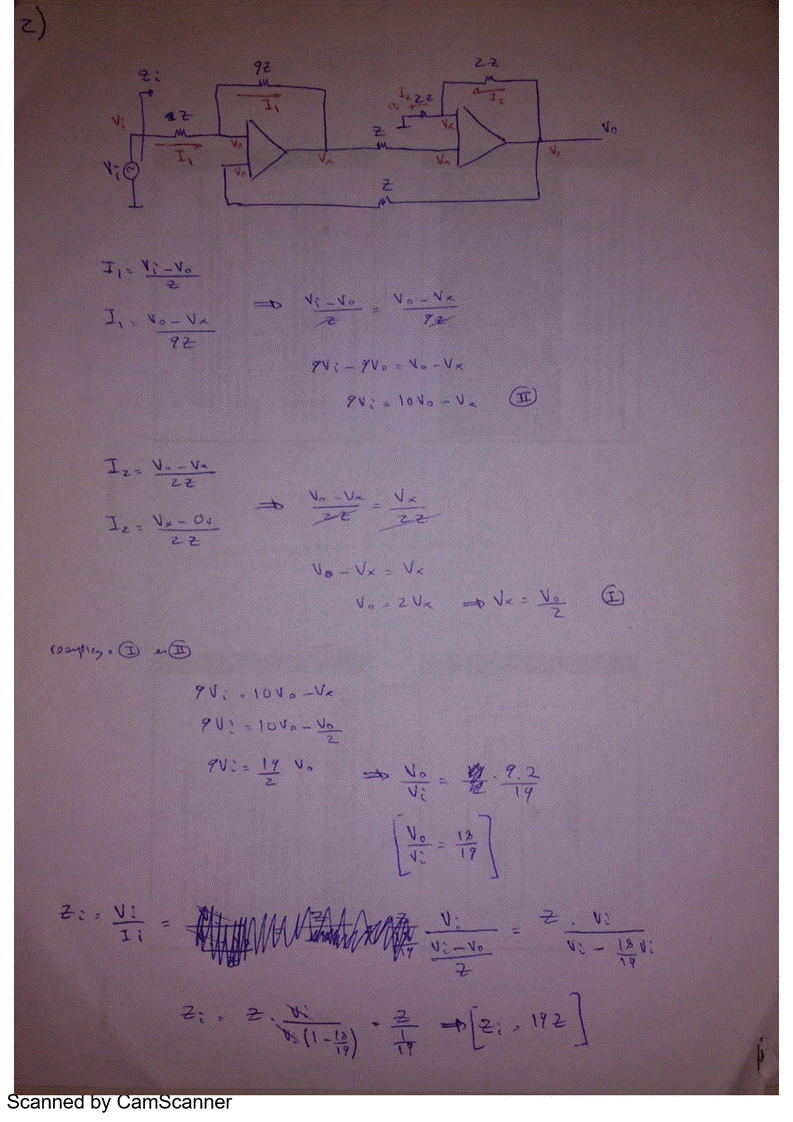 2)
Zi
9Z
2Z
I₁
I₂ 2Z
I₂
Vi
Z
V₀
Vx
Z
V₀
I₁
Vx
Vx
Vi
V₀
Z
I₁ = (Vi - V₀)/Z
I₁ = (V₀ - Vx)/9Z ⇒ (Vi - V₀)/Z = (V₀ - Vx)/9Z
9Vi - 9V₀ = V₀ - Vx
9Vi = 10V₀ - Vx (II)
I₂ = (V₀ - Vx)/2Z
I₂ = (Vx - 0v)/2Z ⇒ (V₀ - Vx)/2Z = Vx/2Z
V₀ - Vx = Vx
V₀ = 2Vx ⇒ Vx = V₀/2 (I)
(I) en (II)
9Vi = 10V₀ - Vx
9Vi = 10V₀ - V₀/2
9Vi = 19/2 V₀ ⇒ V₀/Vi = · 9.2/19
[V₀/Vi = 18/19]
Zi = Vi/Ii = Vi/((Vi - V₀)/Z) = Z · Vi/(Vi - 18/19 Vi)
Zi = Z · Vi/(Vi(1 - 18/19)) = Z/(1/19) ⇒ [Zi = 19Z]
Scanned by CamScanner